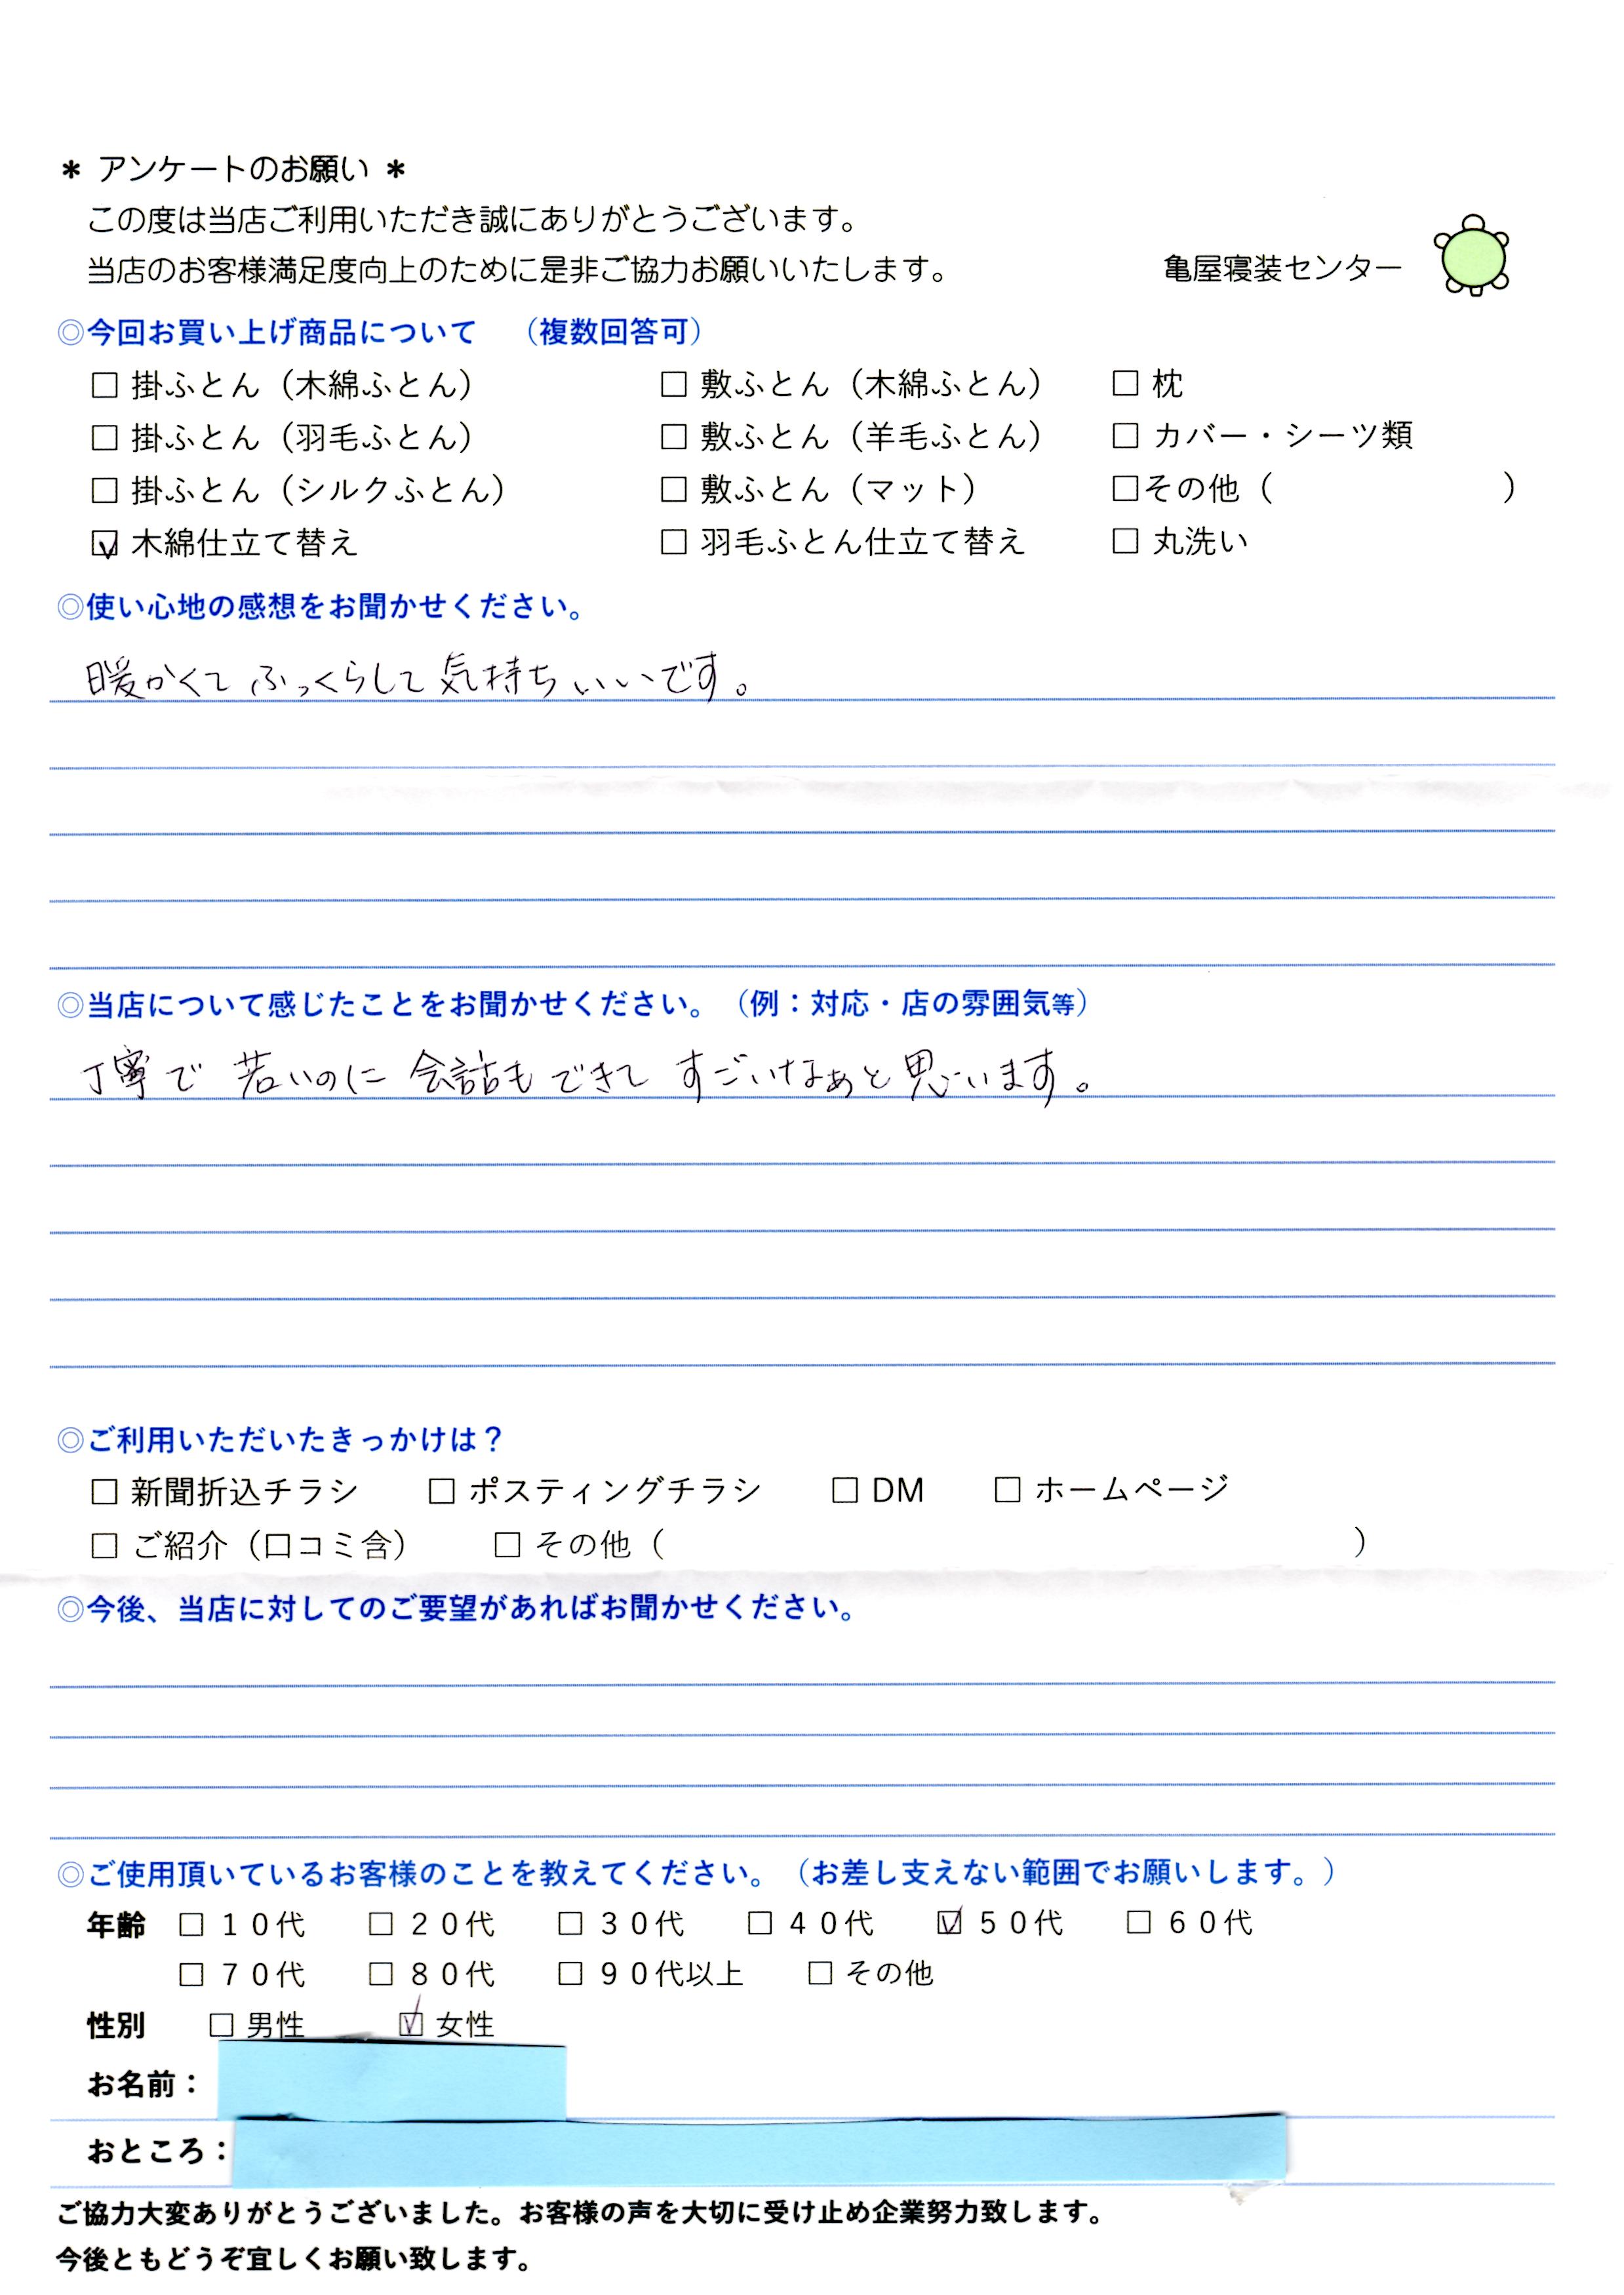 ＊ アンケートのお願い ＊
この度は当店ご利用いただき誠にありがとうございます。
当店のお客様満足度向上のために是非ご協力お願いいたします。 亀屋寝装センター
◎今回お買い上げ商品について （複数回答可）
□ 掛ふとん（木綿ふとん） □ 敷ふとん（木綿ふとん） □ 枕
□ 掛ふとん（羽毛ふとん） □ 敷ふとん（羊毛ふとん） □ カバー・シーツ類
□ 掛ふとん（シルクふとん） □ 敷ふとん（マット） □その他（ ）
☑ 木綿仕立て替え □ 羽毛ふとん仕立て替え □ 丸洗い
◎使い心地の感想をお聞かせください。
暖かくてふっくらして気持ちいいです。
◎当店について感じたことをお聞かせください。（例：対応・店の雰囲気等）
丁寧で 若いのに 会話もできて すごいなぁと思います。
◎ご利用いただいたきっかけは？
□ 新聞折込チラシ □ ポスティングチラシ □ DM □ ホームページ
□ ご紹介（口コミ含） □ その他（ ）
◎今後、当店に対してのご要望があればお聞かせください。
◎ご使用頂いているお客様のことを教えてください。（お差し支えない範囲でお願いします。）
年齢 □ １０代 □ ２０代 □ ３０代 □ ４０代 ☑ ５０代 □ ６０代
□ ７０代 □ ８０代 □ ９０代以上 □ その他
性別 □ 男性 ☑ 女性
お名前：
おところ：
ご協力大変ありがとうございました。お客様の声を大切に受け止め企業努力致します。
今後ともどうぞ宜しくお願い致します。